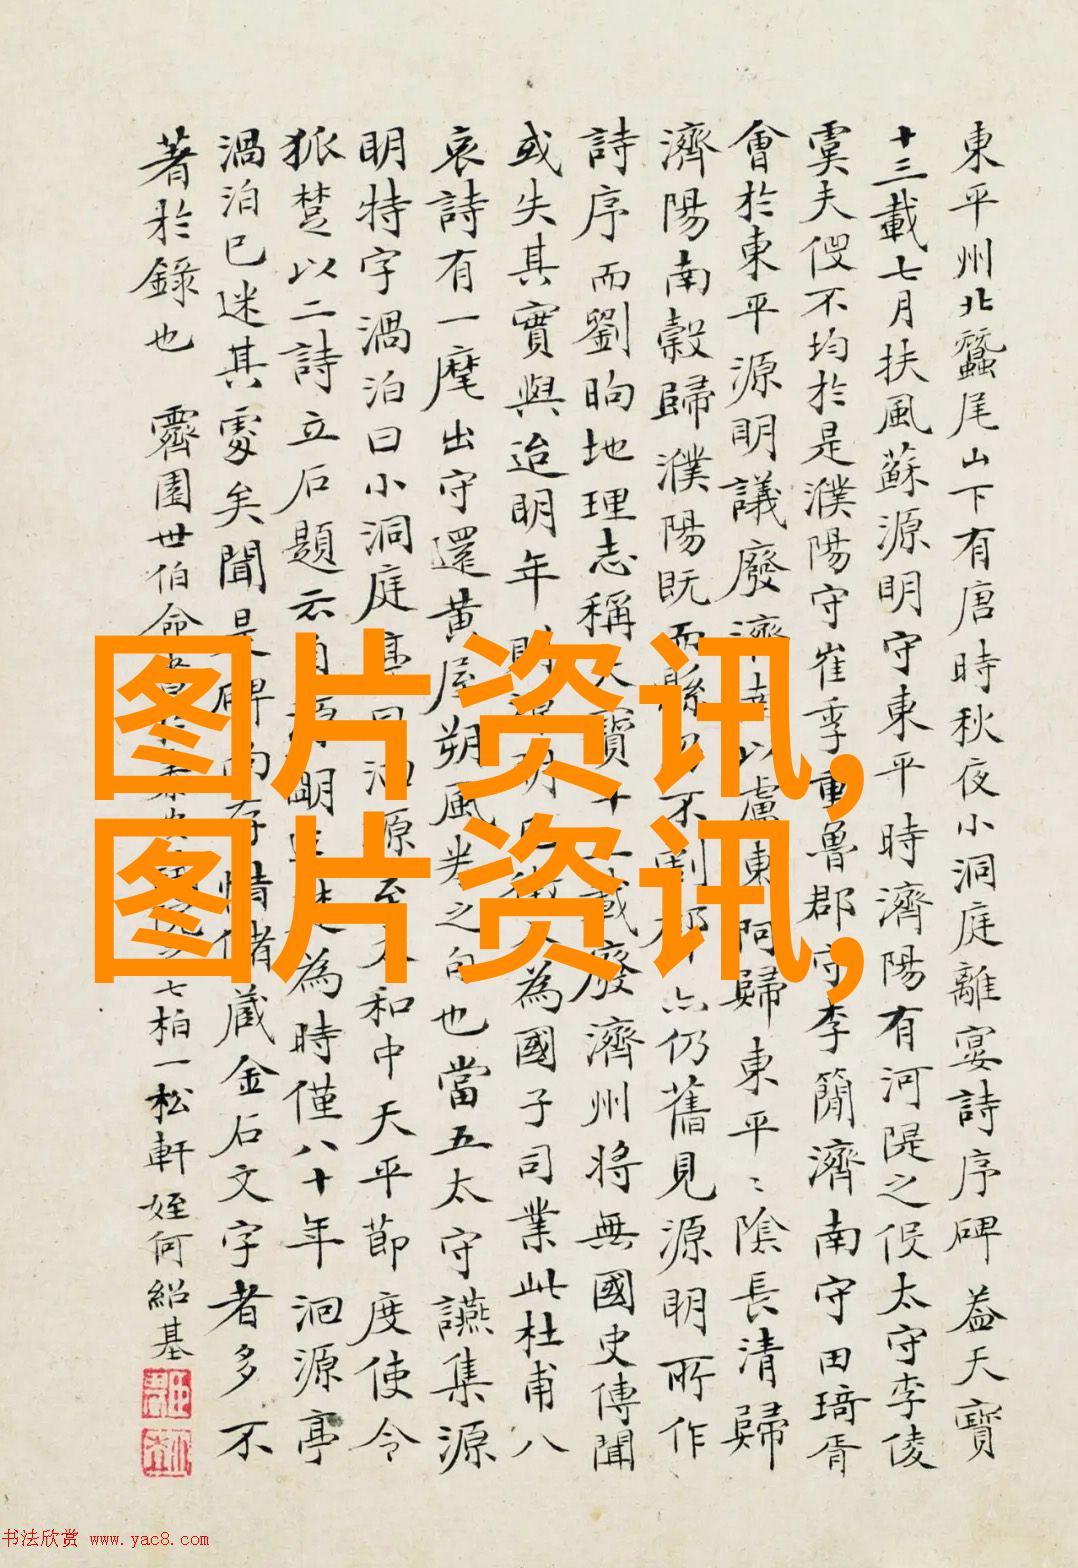 東平州北蠶尾山下有唐時秋夜小洞庭離宴詩序碑 葢天寶
十三載七月扶風蘇源明守東平時濟陽有河隄之役太守李倰
虞夫役不均於是濮陽守崔季重魯郡守李簡濟南守田琦胥
會於東平源明議廢濟 以盧 東阿歸東平〻陰長清歸
濟陽南穀歸濮陽既而縣 不割 仍舊見源明所作
詩序而劉昫地理志稱天寶十 載廢濟州將無國史傳聞
或失其實與迨明年 源明 為國子司業此杜甫八
哀詩有一麾出守還黃屋朔風卷之句也當五太守讌集源
明特字渦泊曰小洞庭亭曰洄源至太和中天平節度使令
狐楚以二詩立石題云 源明 為時僅八十年洄源亭
渦泊已迷其處矣聞是碑尚存惜儲藏金石文字者多不
著於錄也 霽園世伯命書 七柏一松軒姪何紹基
图片资讯,
图片资讯,
书法欣赏 www.yac8.com